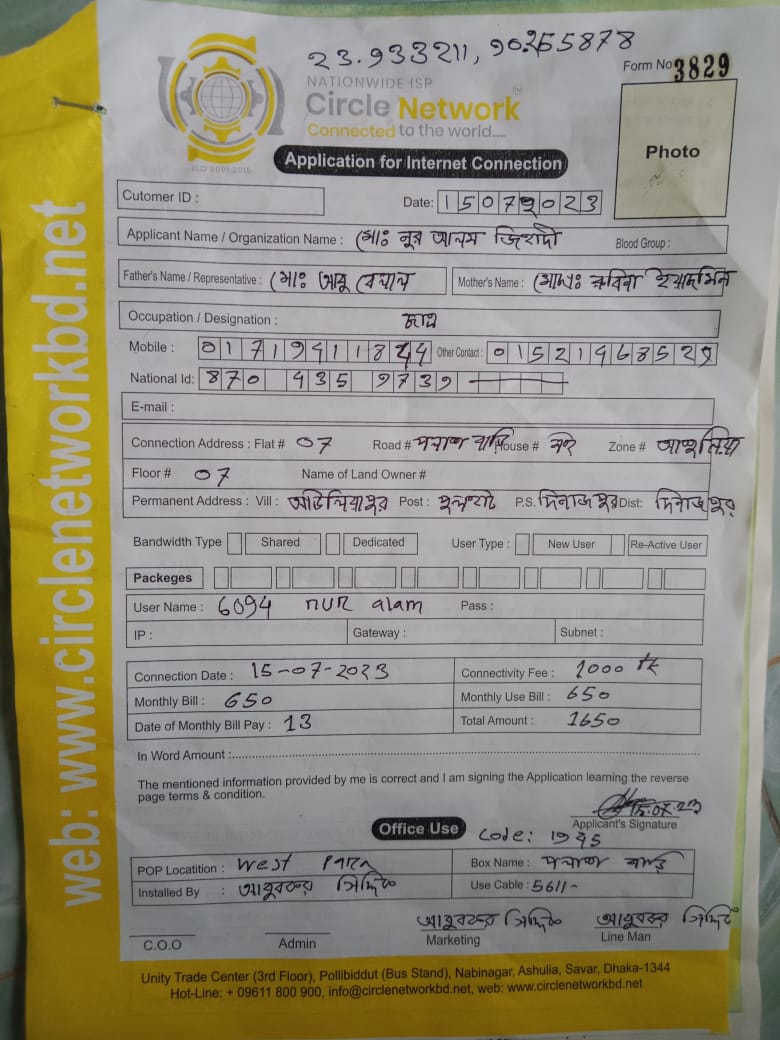 23.933211, 90.265878
NATIONWIDE ISP
Form No 3829
Circle Network
Connected to the world.....
ISO 9001:2015
Photo
Application for Internet Connection
web: www.circlenetworkbd.net
Cutomer ID :
Date: 15072023
Applicant Name / Organization Name : মোঃ নুর আলম জিহাদী
Blood Group :
Father's Name / Representative : মোঃ আবু বেলাল
Mother's Name : মোছাঃ রুবিনা ইয়াসমিন
Occupation / Designation : ছাত্র
Mobile : 01719411844 Other Contact : 01521468529
National Id: 870 435 9739
E-mail :
Connection Address : Flat # 07 Road # পলাশ বাড়ি House # Zone # আশুলিয়া
Floor # 07 Name of Land Owner #
Permanent Address : Vill : Post : P.S. দিনাজপুর Dist: দিনাজপুর
Bandwidth Type Shared Dedicated User Type : New User Re-Active User
Packeges
User Name : 6094 nur alam Pass :
IP : Gateway : Subnet :
Connection Date : 15-07-2023 Connectivity Fee : 1000 tk
Monthly Bill : 650 Monthly Use Bill : 650
Date of Monthly Bill Pay : 13 Total Amount : 1650
In Word Amount :
The mentioned information provided by me is correct and I am signing the Application learning the reverse
page terms & condition.
15.07.23
Applicant's Signature
Office Use Code:
POP Locatition : West Para Box Name : পলাশ বাড়ি
Installed By : আবুবকর সিদ্দিক Use Cable : 5611-
আবুবকর সিদ্দিক আবুবকর সিদ্দিক
C.O.O Admin Marketing Line Man
Unity Trade Center (3rd Floor), Pollibiddut (Bus Stand), Nabinagar, Ashulia, Savar, Dhaka-1344
Hot-Line: + 09611 800 900, info@circlenetworkbd.net, web: www.circlenetworkbd.net